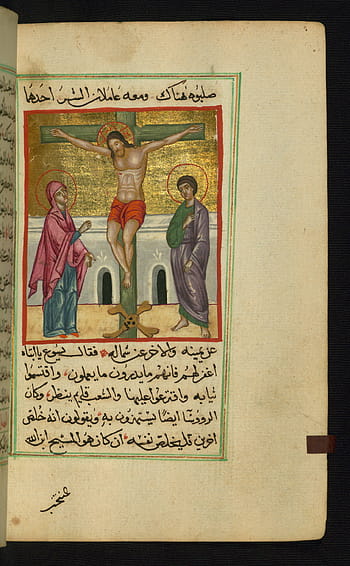 صلبوه هناك ومعه عاملان الشر احدهما
عن يمينه والاخر عن شماله فقال يسوع يا ابتاه
اغفر لهم فانهم ما يدرون ما يعملون واقتسموا
ثيابه واقترعوا عليها والشعب قايم ينظر وكان
الرووسا ايضا يستهزون به ويقولون انه خلص
اخرين فليخلص نفسه ان كان هو المسيح ابن الله
المنتخب